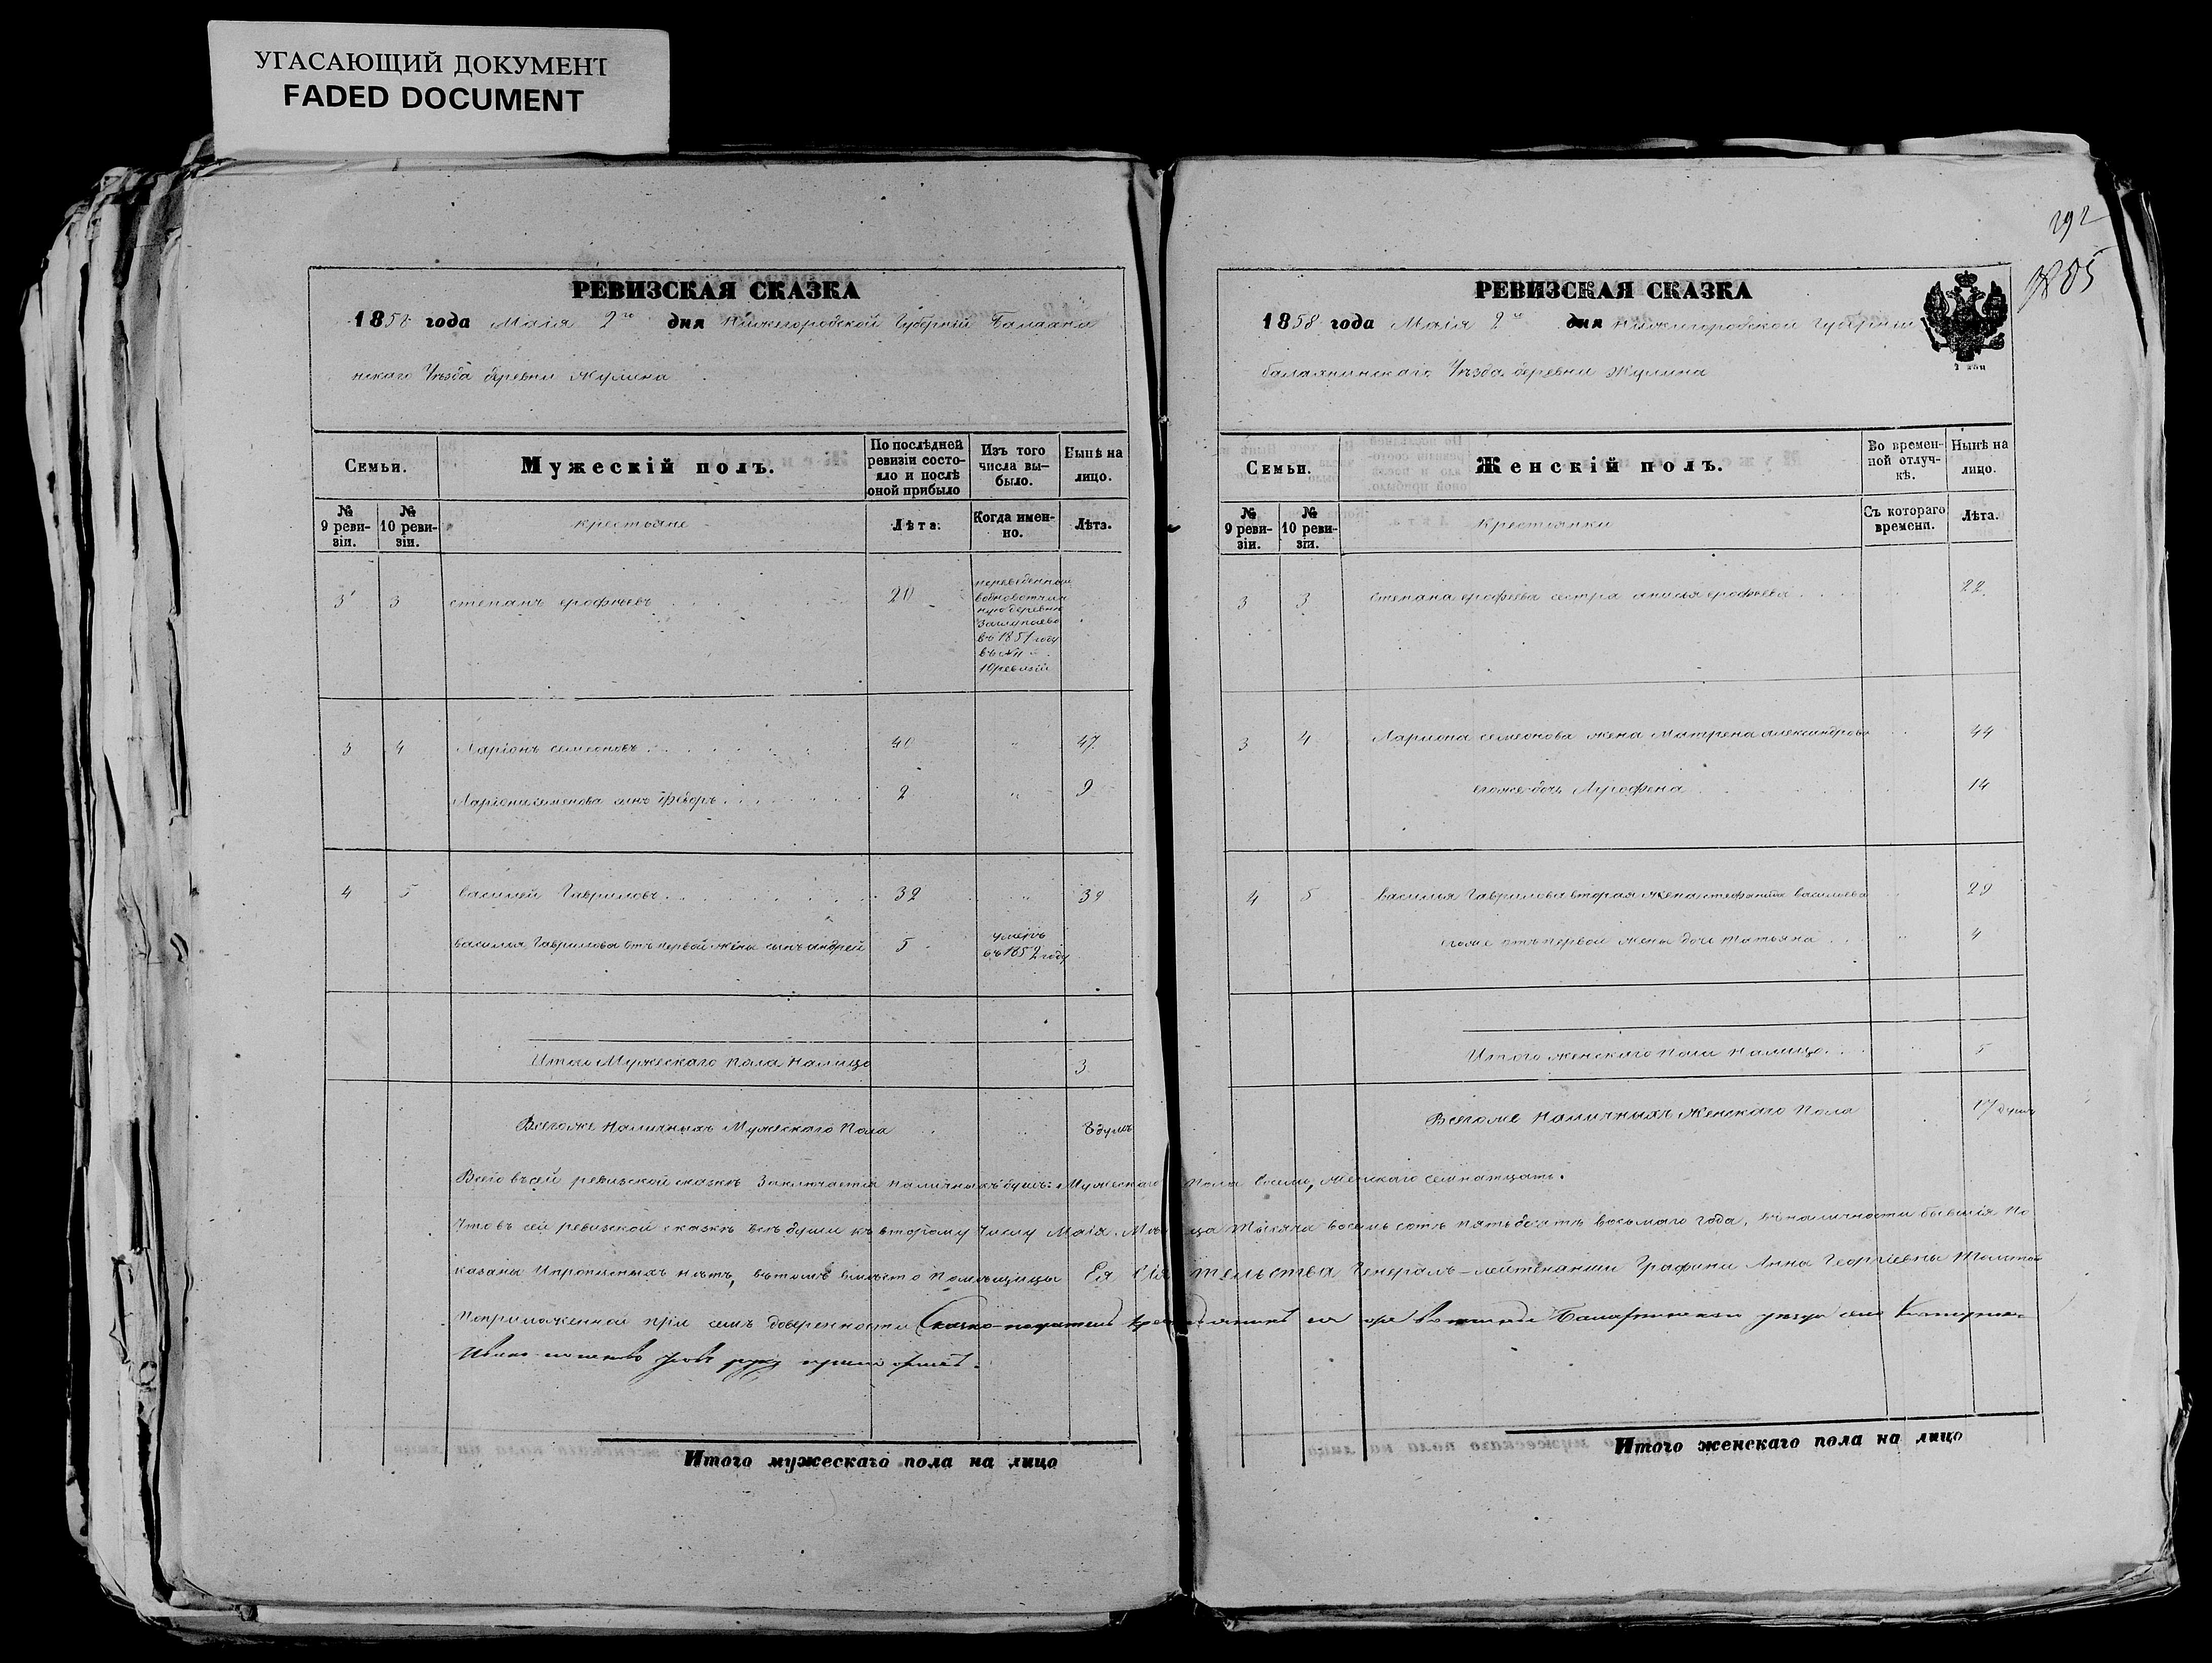 УГАСАЮЩИЙ ДОКУМЕНТ
FADED DOCUMENT
РЕВИЗСКАЯ СКАЗКА
1858 года Маія 2го дня Нижегородской Губерніи Балахни
нскаго Уѣзда деревни Жулина
Семьи.
Мужескій полъ.
По послѣдней ревизіи состояло и послѣ оной прибыло
Изъ того числа выбыло.
Нынѣ на лицо.
№ 9 ревизіи.
№ 10 ревизіи.
крестьяне
Лѣта.
Когда именно.
Лѣта.
3 3 степанъ ерофѣевъ 20
переведенный
деревню
въ 1851 году
въ №
10 ревизіи
3 4 Ларіонъ семеоновъ 40 " 47
Ларіона семенова сынъ Федоръ 2 " 9
4 5 василей Гавриловъ 32 " 39
василья Гаврилова отъ первой жены сынъ андрей 5 умеръ
въ 1852 году
Итого Мужескаго пола налицо 3
Всегоже наличныхъ Мужескаго пола 8 душъ
Итого мужескаго пола на лицо
292
РЕВИЗСКАЯ СКАЗКА
1858 года Маія 2го дня Нижегородской Губерніи
балахнинскаго Уѣзда деревни Жулина
Семьи.
Женскій полъ.
Во временной отлучкѣ.
Нынѣ на лицо.
№ 9 ревизіи.
№ 10 ревизіи.
Крестьянки
Съ котораго времени.
Лѣта.
3 3 степана ерофеева сестра анисья ерофеева 22
3 4 Лариона семеонова жена Матрена александрова 44
егоже дочь Агрофена 14
4 5 василья Гаврилова вторая жена васильева 29
егоже отъ первой жены дочь татьяна " 4
Итого женскаго пола налицо 5
Всегоже наличныхъ Женскаго пола 17 душъ
Всего въ сей ревизской сказкѣ Заключается наличныхъ душъ: Мужескаго Пола восемь, женскаго семнатцать.
Что въ сей ревизской сказкѣ всѣ души къ второму числу Маія Мѣсяца Тысяча восемь сотъ пятьдесятъ восьмаго года, въ наличности бывшія по
казаны и прописныхъ нѣтъ, вътомъ вмѣсто помѣщицы Ея Сіятельства Генералъ-лейтенанши Графини Анны Георгіевны Толстой
по приложенной при семъ доверенности Балахнинскаго уезда села
руку приложилъ.
Итого женскаго пола на лицо